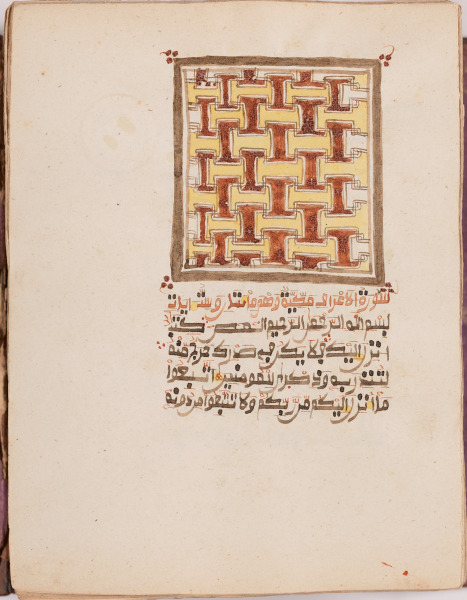 سورة الاعراف مكية وهي مايتان وست ايات
بسم الله الرحمن الرحيم المص كتب
انزل اليك فلا يكن في صدرك حرج منه
لتنذر به وذكرى للمومنين اتبعوا
ما انزل اليكم من ربكم ولا تتبعوا من دونه